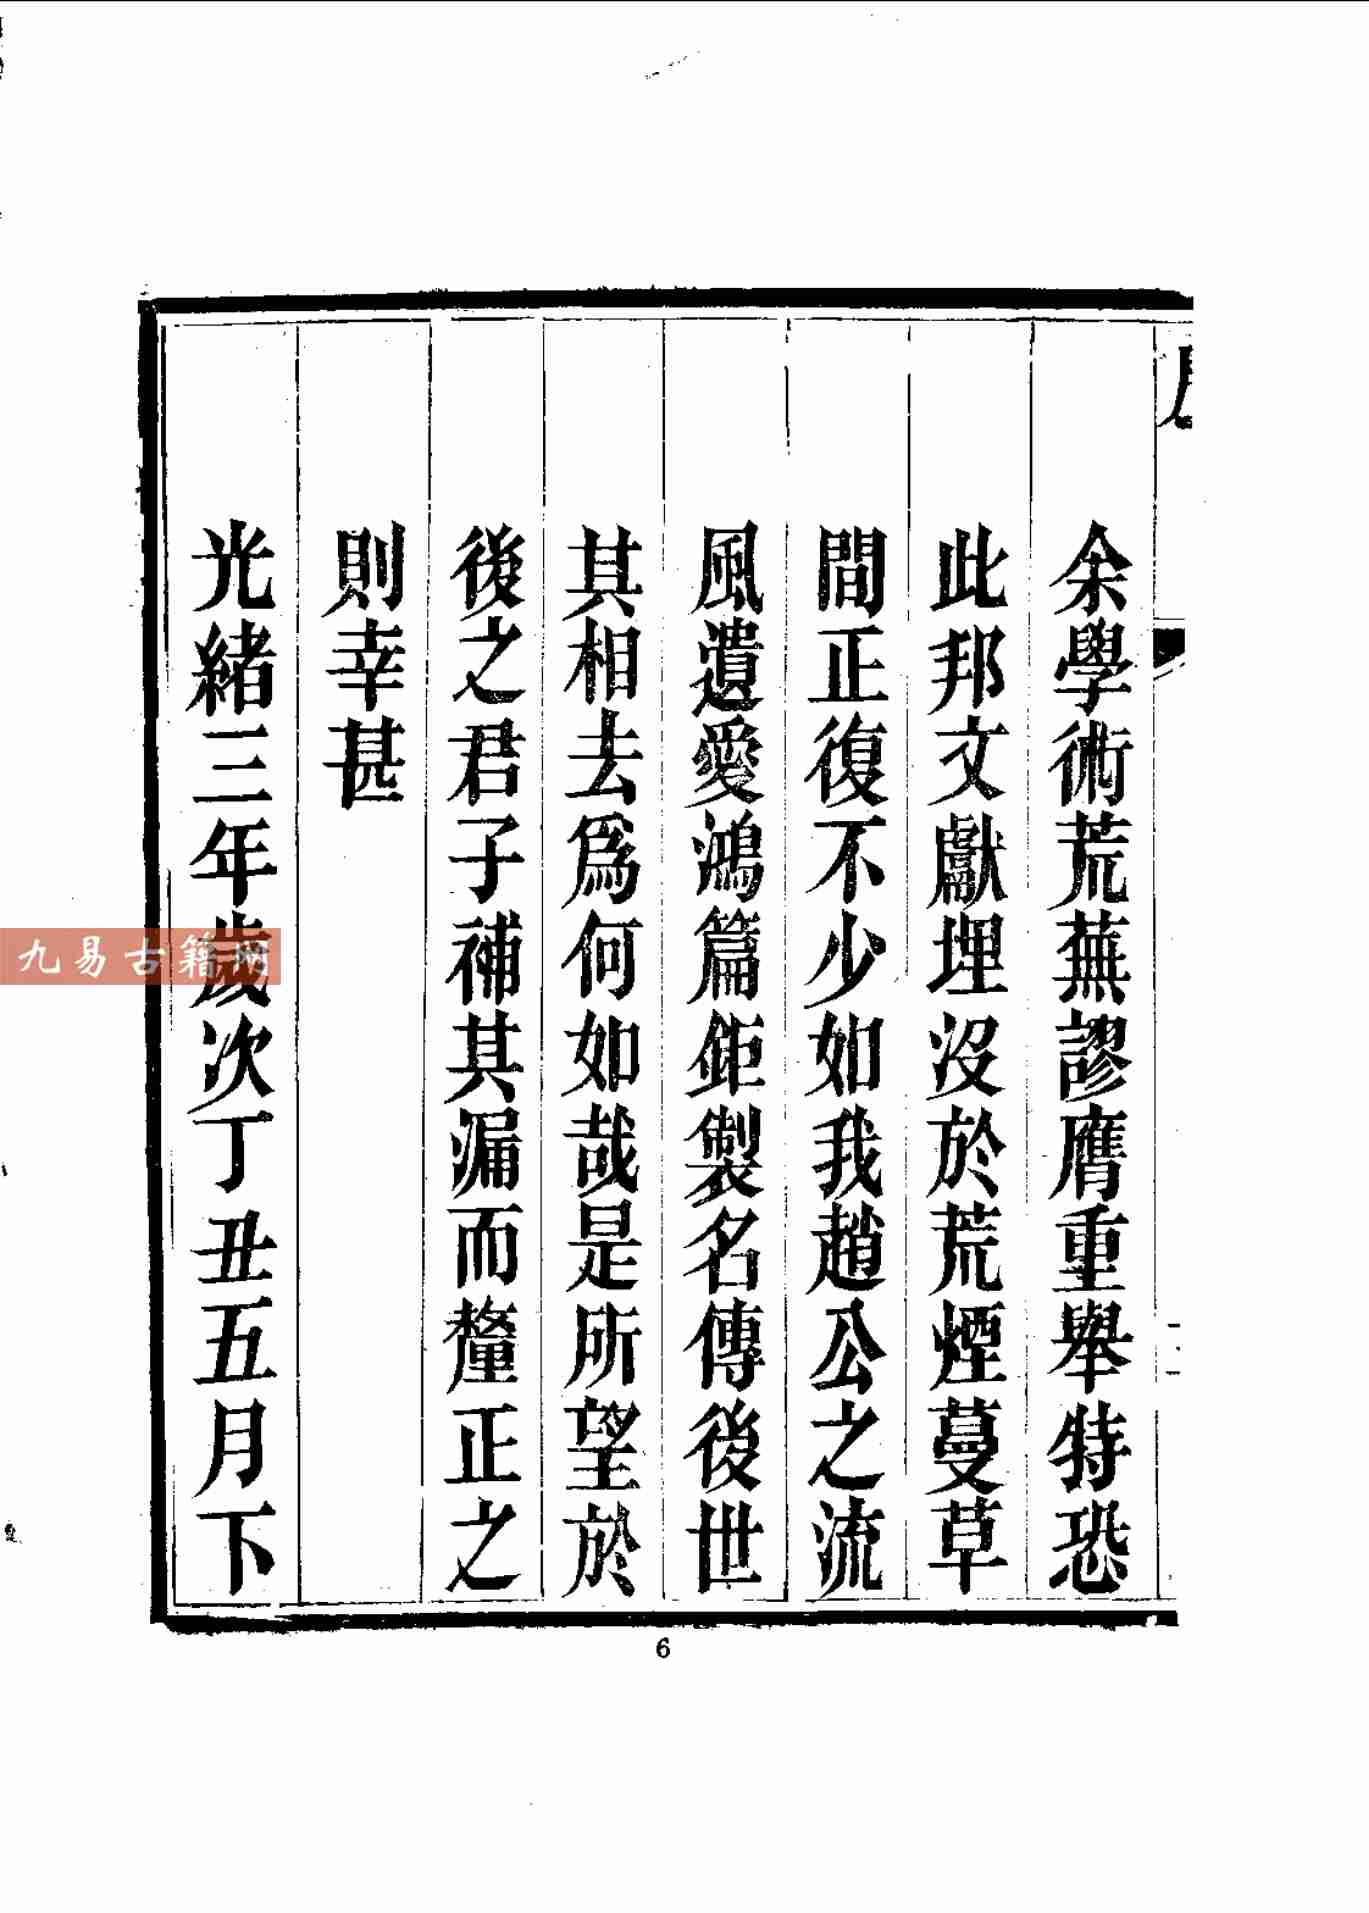 余學術荒蕪謬膺重舉特恐
此邦文獻埋沒於荒煙蔓草
間正復不少如我趙公之流
風遺愛鴻篇鉅製名傳後世
其相去爲何如哉是所望於
後之君子補其漏而釐正之
則幸甚
光緒三年歲次丁丑五月下
九易古籍网
6